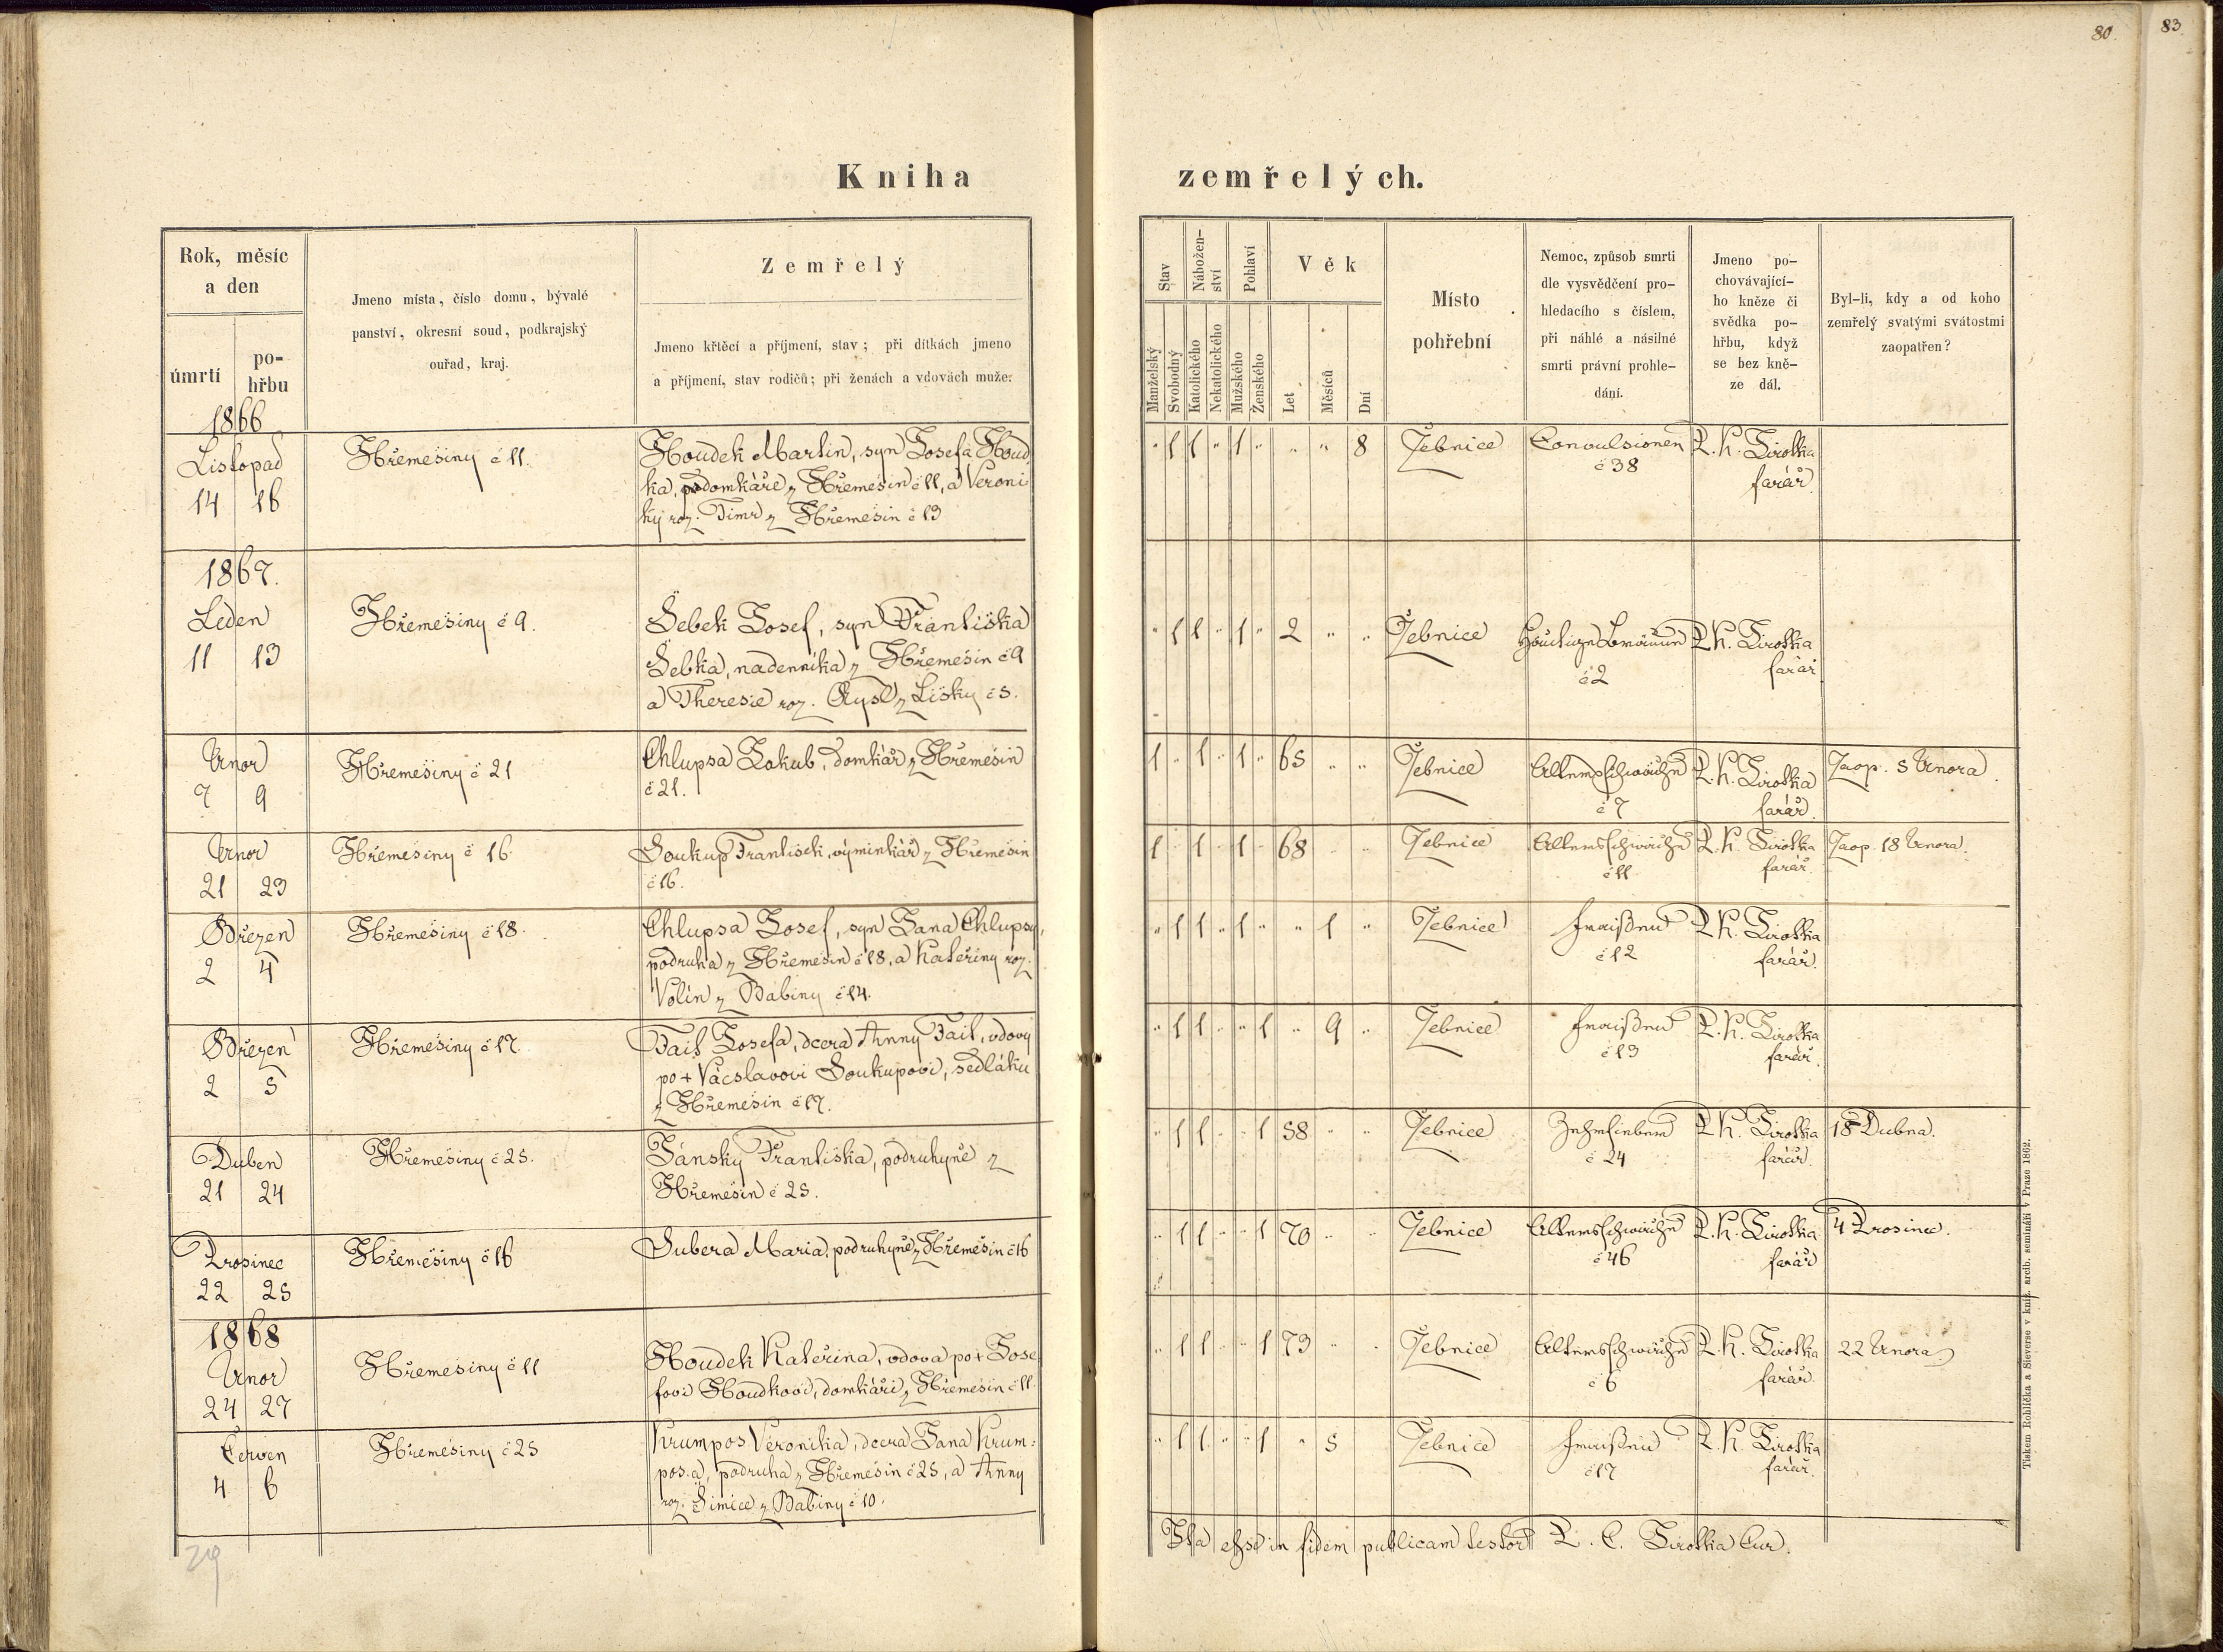 80.
83.
Kniha zemřelých.
Rok, měsíc
a den
úmrtí
po-
hřbu
Jmeno místa, číslo domu, bývalé
panství, okresní soud, podkrajský
ouřad, kraj.
Zemřelý
Jmeno křtěcí a příjmení, stav; při dítkách jmeno
a příjmení, stav rodičů; při ženách a vdovách muže.
Stav
Nábožen-
ství
Pohlaví
Věk
Manželský
Svobodný
Katolického
Nekatolického
Mužského
Ženského
Let
Měsíců
Dní
Místo
pohřební
Nemoc, způsob smrti
dle vysvědčení pro-
hledacího s číslem,
při náhlé a násilné
smrti právní prohle-
dání.
Jmeno po-
chovávající-
ho kněze či
svědka po-
hřbu, když
se bez kně-
ze dál.
Byl-li, kdy a od koho
zemřelý svatými svátostmi
zaopatřen?
1866
Listopad
14 16
Hřemešiny č 11.
Houdek Martin, syn Josefa Houd
ka, podomkáře z Hřemešin č 11, a Veroni
ky roz. Timr z Hřemešin č 13
" 1 1 " 1 " " " 8
Žebnice
Convulsionen
č 38
P. K. Sirotka
farář.
1867.
Leden
11 13
Hřemešiny č 9.
Šebek Josef, syn Františka
Šebka, nadenníka z Hřemešin č 9
a Theresie roz. Rysl z Lišky č 5.
" 1 1 " 1 " 2 " "
Žebnice
Häutige Bräune
č 2
P. K. Sirotka
farář
Únor
7 9
Hřemešiny č 21
Chlupsa Jakub, domkář z Hřemešin
č 21.
1 " 1 " 1 " 65 " "
Žebnice
Altersschwäche
č 7
P. K. Sirotka
farář.
Zaop. 5 Února.
Únor
21 23
Hřemešiny č 16.
Soukup František, výminkář z Hřemešin
č 16.
1 " 1 " 1 " 68 " "
Žebnice
Altersschwäche
č 11
P. K. Sirotka
farář.
Zaop. 18 Února.
Březen
2 4
Hřemešiny č 18.
Chlupsa Josef, syn Jana Chlupsy,
podruha z Hřemešin č 18, a Kateřiny roz.
Volín z Babiny č 14.
" 1 1 " 1 " " 1 "
Žebnice
Fraißen
č 12
P. K. Sirotka
farář.
Březen
2 5
Hřemešiny č 17.
Fail Josefa, dcera Anny Fail, vdovy
po + Vácslavovi Soukupovi, sedláku
z Hřemešin č 17.
" 1 1 " " 1 " 9 "
Žebnice
Fraißen
č 13
P. K. Sirotka
farář.
Duben
21 24
Hřemešiny č 25.
Jánský Františka, podruhyně z
Hřemešin č 25.
" 1 1 " " 1 58 " "
Žebnice
Zehrfieber
č 24
P. K. Sirotka
farář.
18 Dubna.
Prosinec
22 25
Hřemešiny č 16
Subera Maria, podruhyně z Hřemešin č 16
" 1 1 " " 1 70 " "
Žebnice
Altersschwäche
č 46
P. K. Sirotka
farář
4 Prosince.
1868
Únor
24 27
Hřemešiny č 11
Houdek Kateřina, vdova po + Jose
fovi Houdkovi, domkáři z Hřemešin č 11.
" 1 1 " " 1 73 " "
Žebnice
Altersschwäche
č 6
P. K. Sirotka
farář.
22 Února
Červen
4 6
Hřemešiny č 25
Krumpos Veronika, dcera Jana Krum:
posa, podruha z Hřemešin č 25, a Anny
roz. Šimice z Babiny č 10.
" 1 1 " " 1 " 5
Žebnice
Fraißen
č 17
P. K. Sirotka
farář.
Ita esse in fidem publicam testor P. C. Sirotka Cur.
Tiskem Rohlíčka a Sieverse v kníž. arcib. semináři v Praze 1862.